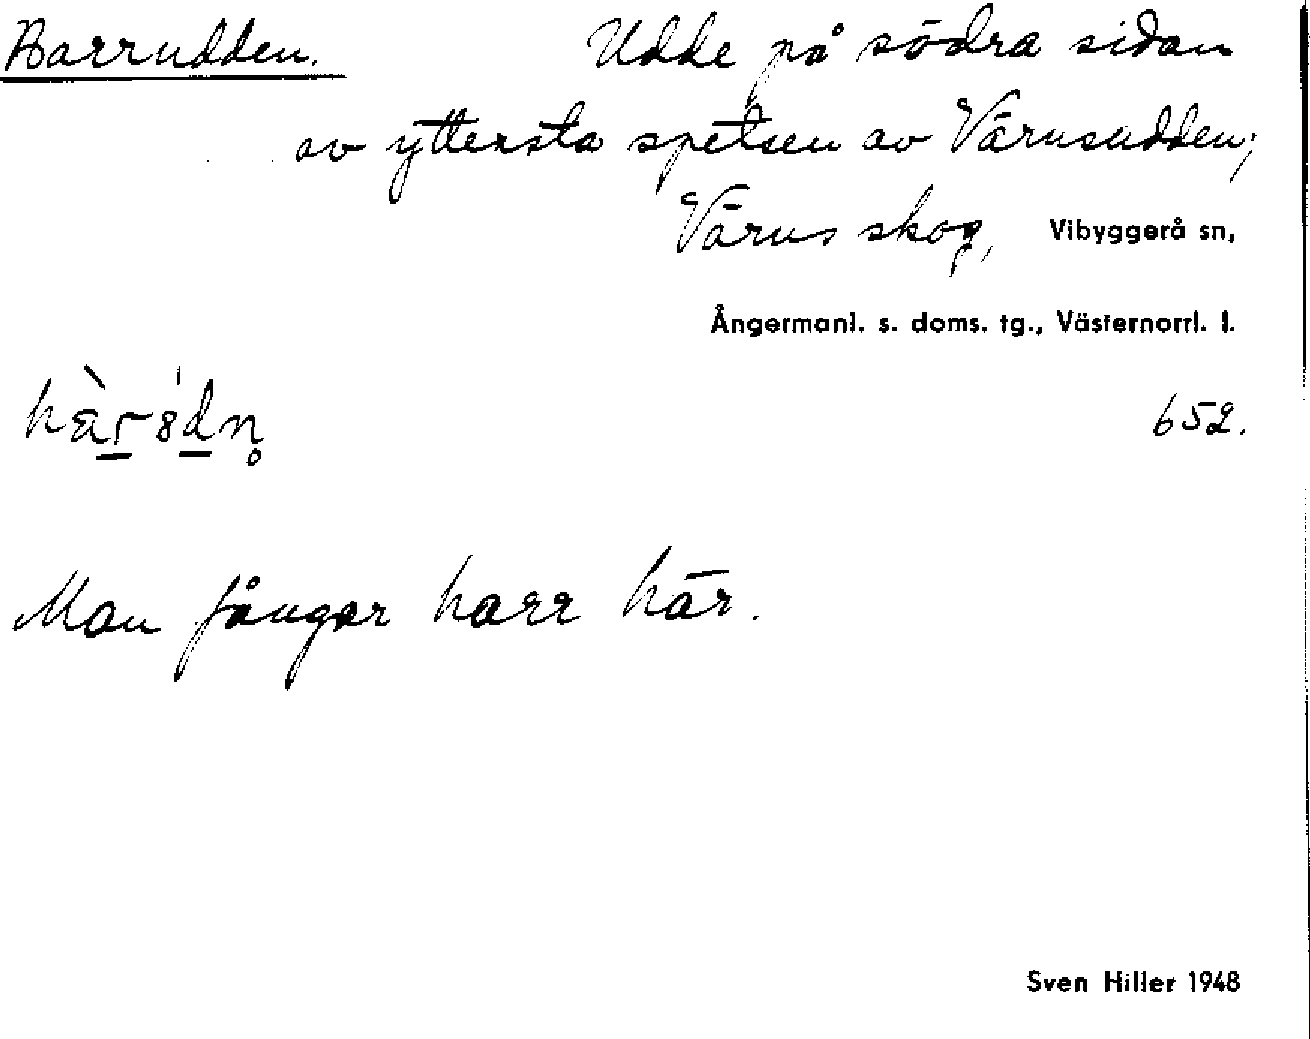 Harrudden. Udde på södra sidan
av yttersta spetsen av Värnsudden;
Värns skog, Vibyggerå sn,
Ångermanl. s. doms. tg., Västernorrl. l.
652.
Man fångar harr här.
Sven Hiller 1948